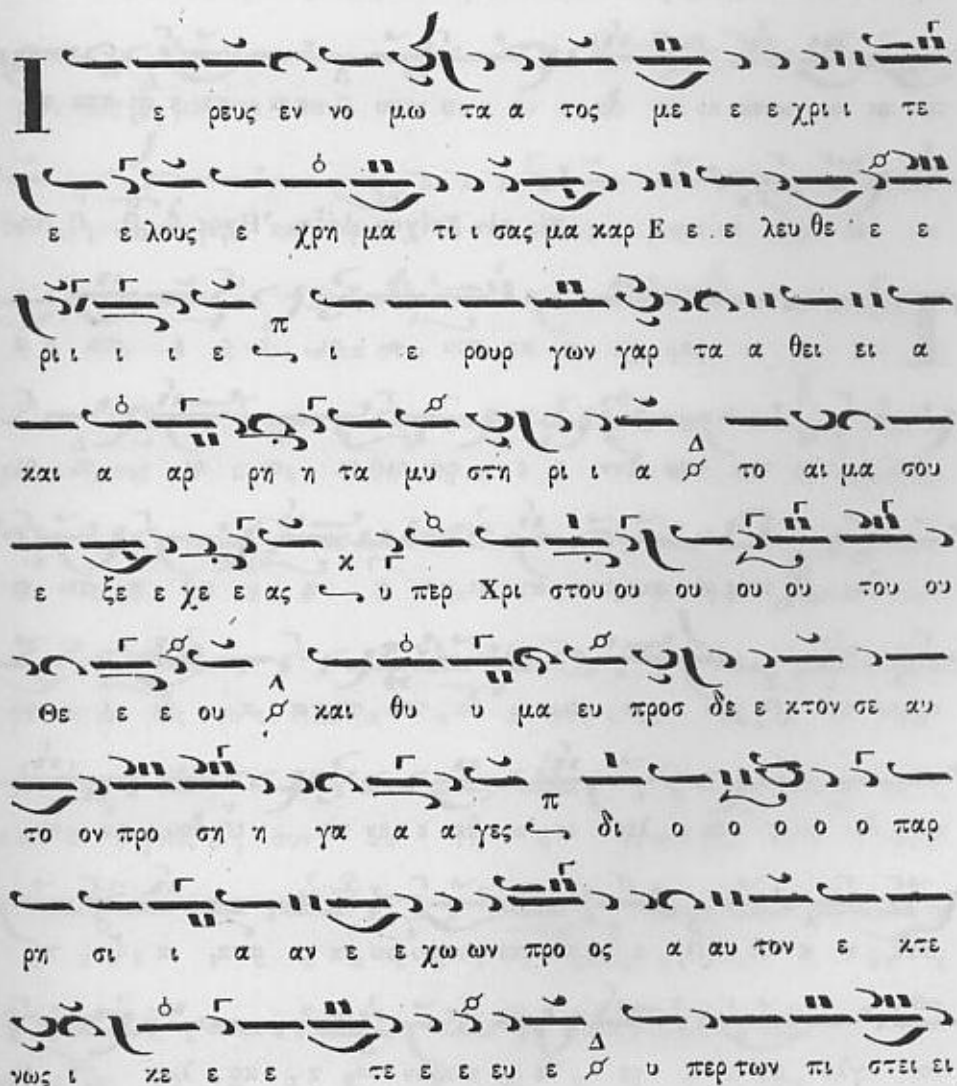 Ι ε ρευς εν νο μω τα α τος με ε ε χρι ι τε
ε ε λους ε χρη μα τι ι σας μα καρ Ε ε ε λευ θε ε ε
ρι ι ι ι ε π ι ε ρουρ γων γαρ τα α θει ει α
και α αρ ρη η τα μυ στη ρι ι α Δ το αι μα σου
ε ξε ε χε ε ας κ υ περ Χρι στου ου ου ου ου του ου
Θε ε ε ου Δ και θυ υ μα ευ προσ δε ε κτον σε αυ
το ον προ ση η γα α α γες π δι ο ο ο ο ο παρ
ρη σι ι α αν ε ε χω ων προ ος α αυ τον ε κτε
νως ι κε ε ε τε ε ε ευ ε Δ υ περ των πι στει ει